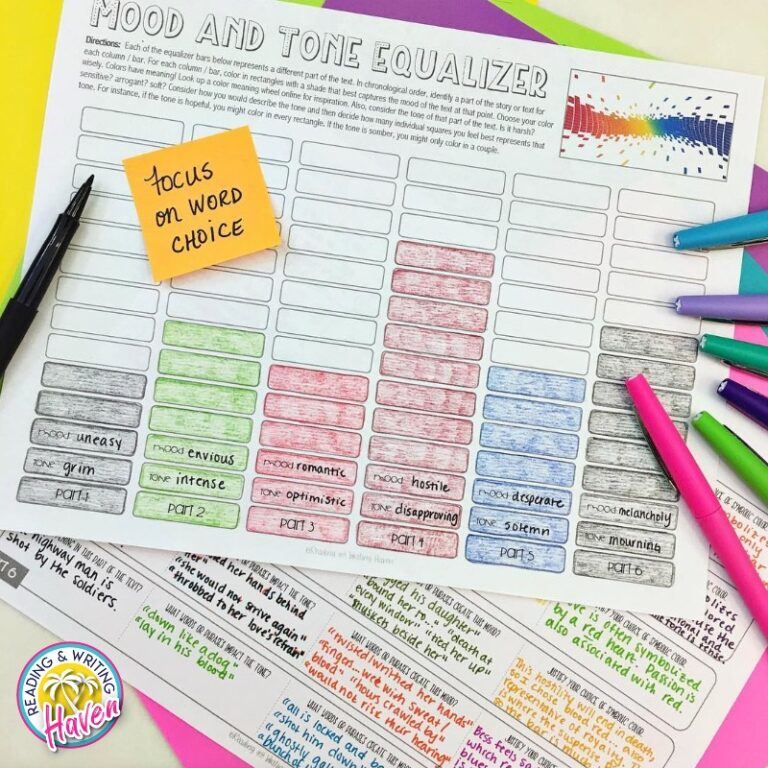 MOOD AND TONE EQUALIZER
Directions: Each of the equalizer bars below represents a different part of the text. In chronological order, identify a part of the story or text for
each column / bar. For each column / bar, color in rectangles with a shade that best captures the mood of the text at that point. Choose your color
wisely. Colors have meaning! Look up a color meaning wheel online for inspiration. Also, consider the tone of that part of the text. Is it harsh?
sensitive? arrogant? soft? Consider how you would describe the tone and then decide how many individual squares you feel best represents that
tone. For instance, if the tone is hopeful, you might color in every rectangle. If the tone is somber, you might only color in a couple.
FOCUS
ON WORD
CHOICE
mood uneasy
tone grim
part 1
mood envious
tone intense
part 2
mood romantic
tone optimistic
part 3
mood hostile
tone disapproving
part 4
mood desperate
tone solemn
part 5
mood melancholy
tone mourning
part 6
©Reading and Writing Haven
IN THIS PART OF THE TEXT?
highway man is
shot by the soldiers.
6
her hands behind
"she would not strive again"
throbbed to her love's refrain"
WHAT WORDS OR PHRASES IMPACT THE TONE?
"down like a dog"
"lay in his blood"
his daughter"
"death at
every window" "tied her up"
muskets beside her"
WHAT WORDS OR PHRASES CREATE THIS MOOD?
"twisted/writhed her hands"
"fingers wet with sweat /
blood" "hours crawled by"
"would not rise their hearing"
WHAT WORDS OR PHRASES IMPACT THE TONE?
"all is locked and
"shot him down
"ghostly
WHAT WORDS OR PHRASES CREATE THIS MOOD?
is often symbolized
by a red heart. Passion is
also associated with red.
JUSTIFY YOUR CHOICE OF SYMBOLIC COLOR
This hostility will end in death,
so I chose blood red. It's also
representative of royalty, and
is where the suspense is, so
bar is much
JUSTIFY YOUR CHOICE OF SYMBOLIC COLOR
Bess feels
which
blue
READING & WRITING
Haven